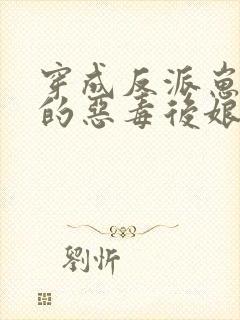 穿成反派崽崽
的惡毒後娘
劉忻